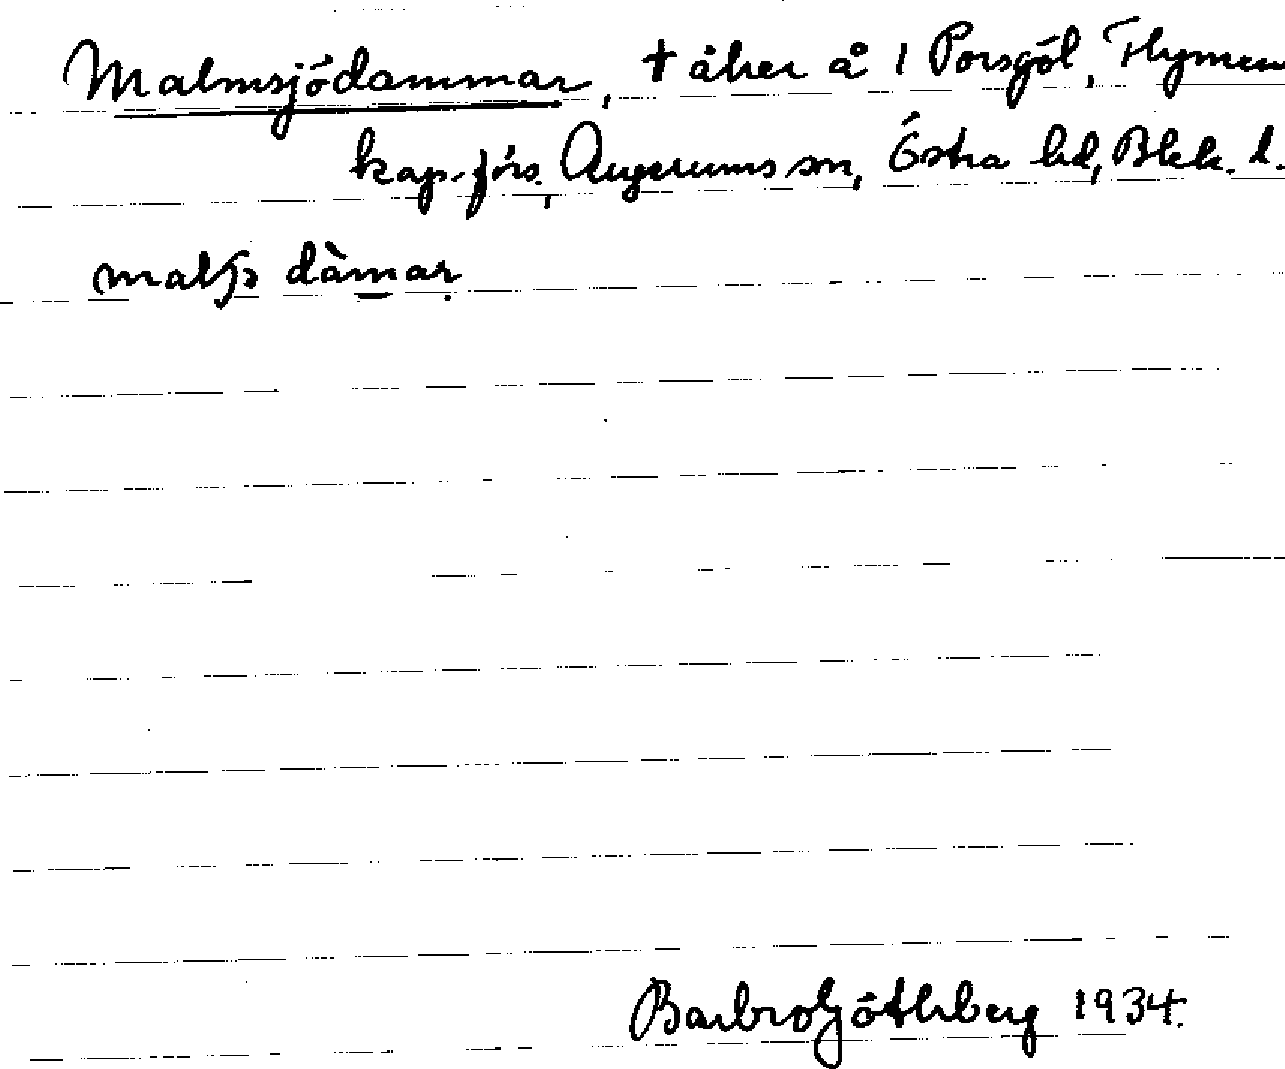 Malmsjödammar, † åker å 1 Porsgöl, Flymen
kap.förs., Augerums sn, Östra hd, Blek. l.
dàmar
Barbro Götherberg 1934.